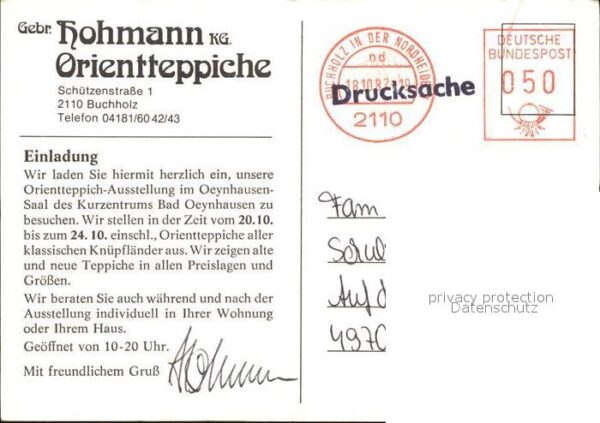 Gebr. Hohmann KG.
Orientteppiche
Schützenstraße 1
2110 Buchholz
Telefon 04181/60 42/43
Einladung
Wir laden Sie hiermit herzlich ein, unsere
Orientteppich-Ausstellung im Oeynhausen-
Saal des Kurzentrums Bad Oeynhausen zu
besuchen. Wir stellen in der Zeit vom 20.10.
bis zum 24.10. einschl., Orientteppiche aller
klassischen Knüpfländer aus. Wir zeigen alte
und neue Teppiche in allen Preislagen und
Größen.
Wir beraten Sie auch während und nach der
Ausstellung individuell in Ihrer Wohnung
oder Ihrem Haus.
Geöffnet von 10-20 Uhr.
Mit freundlichem Gruß
Hohmann
BUCHHOLZ IN DER NORDHEIDE
nd
18.10.82
2110
Drucksache
DEUTSCHE
BUNDESPOST
050
Fam
Schul
Auf d
4970
privacy protection
Datenschutz